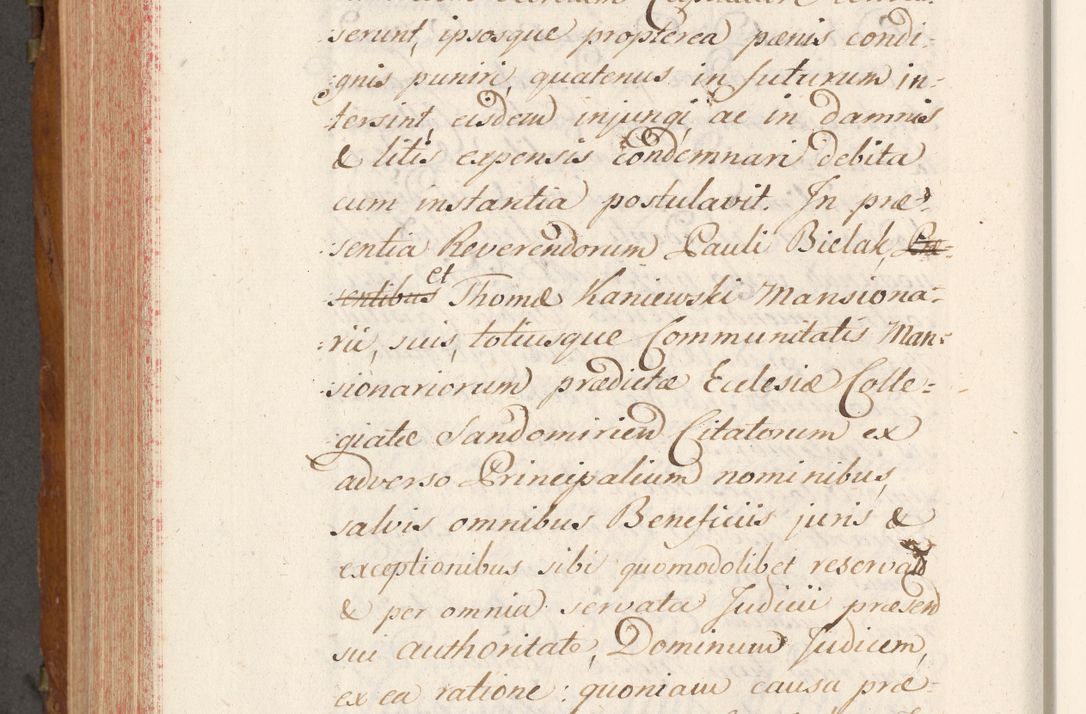 serunt, ipsosque propterea pænis condi-
gnis puniri, quatenus in futurum in-
tersint, eisdem injungi, ac in damnis
& litis expensis condemnari debita
cum instantia postulavit. In præ-
sentia Reverendorum Pauli Bielak, Præ-
sentibus et Thomæ Kaniewski Mansiona-
rii, suis, totiusque Communitatis Man-
sionariorum prædictæ Ecclesiæ Colle-
giatæ Sandomirien Citatorum ex
adverso Principalium nominibus,
salvis omnibus Beneficiis juris &
exceptionibus sibi quomodolibet reservatis
& per omnia servata Judicii præsen
sui authoritate, Dominum Judicem,
ex ea ratione: quoniam causa præ-